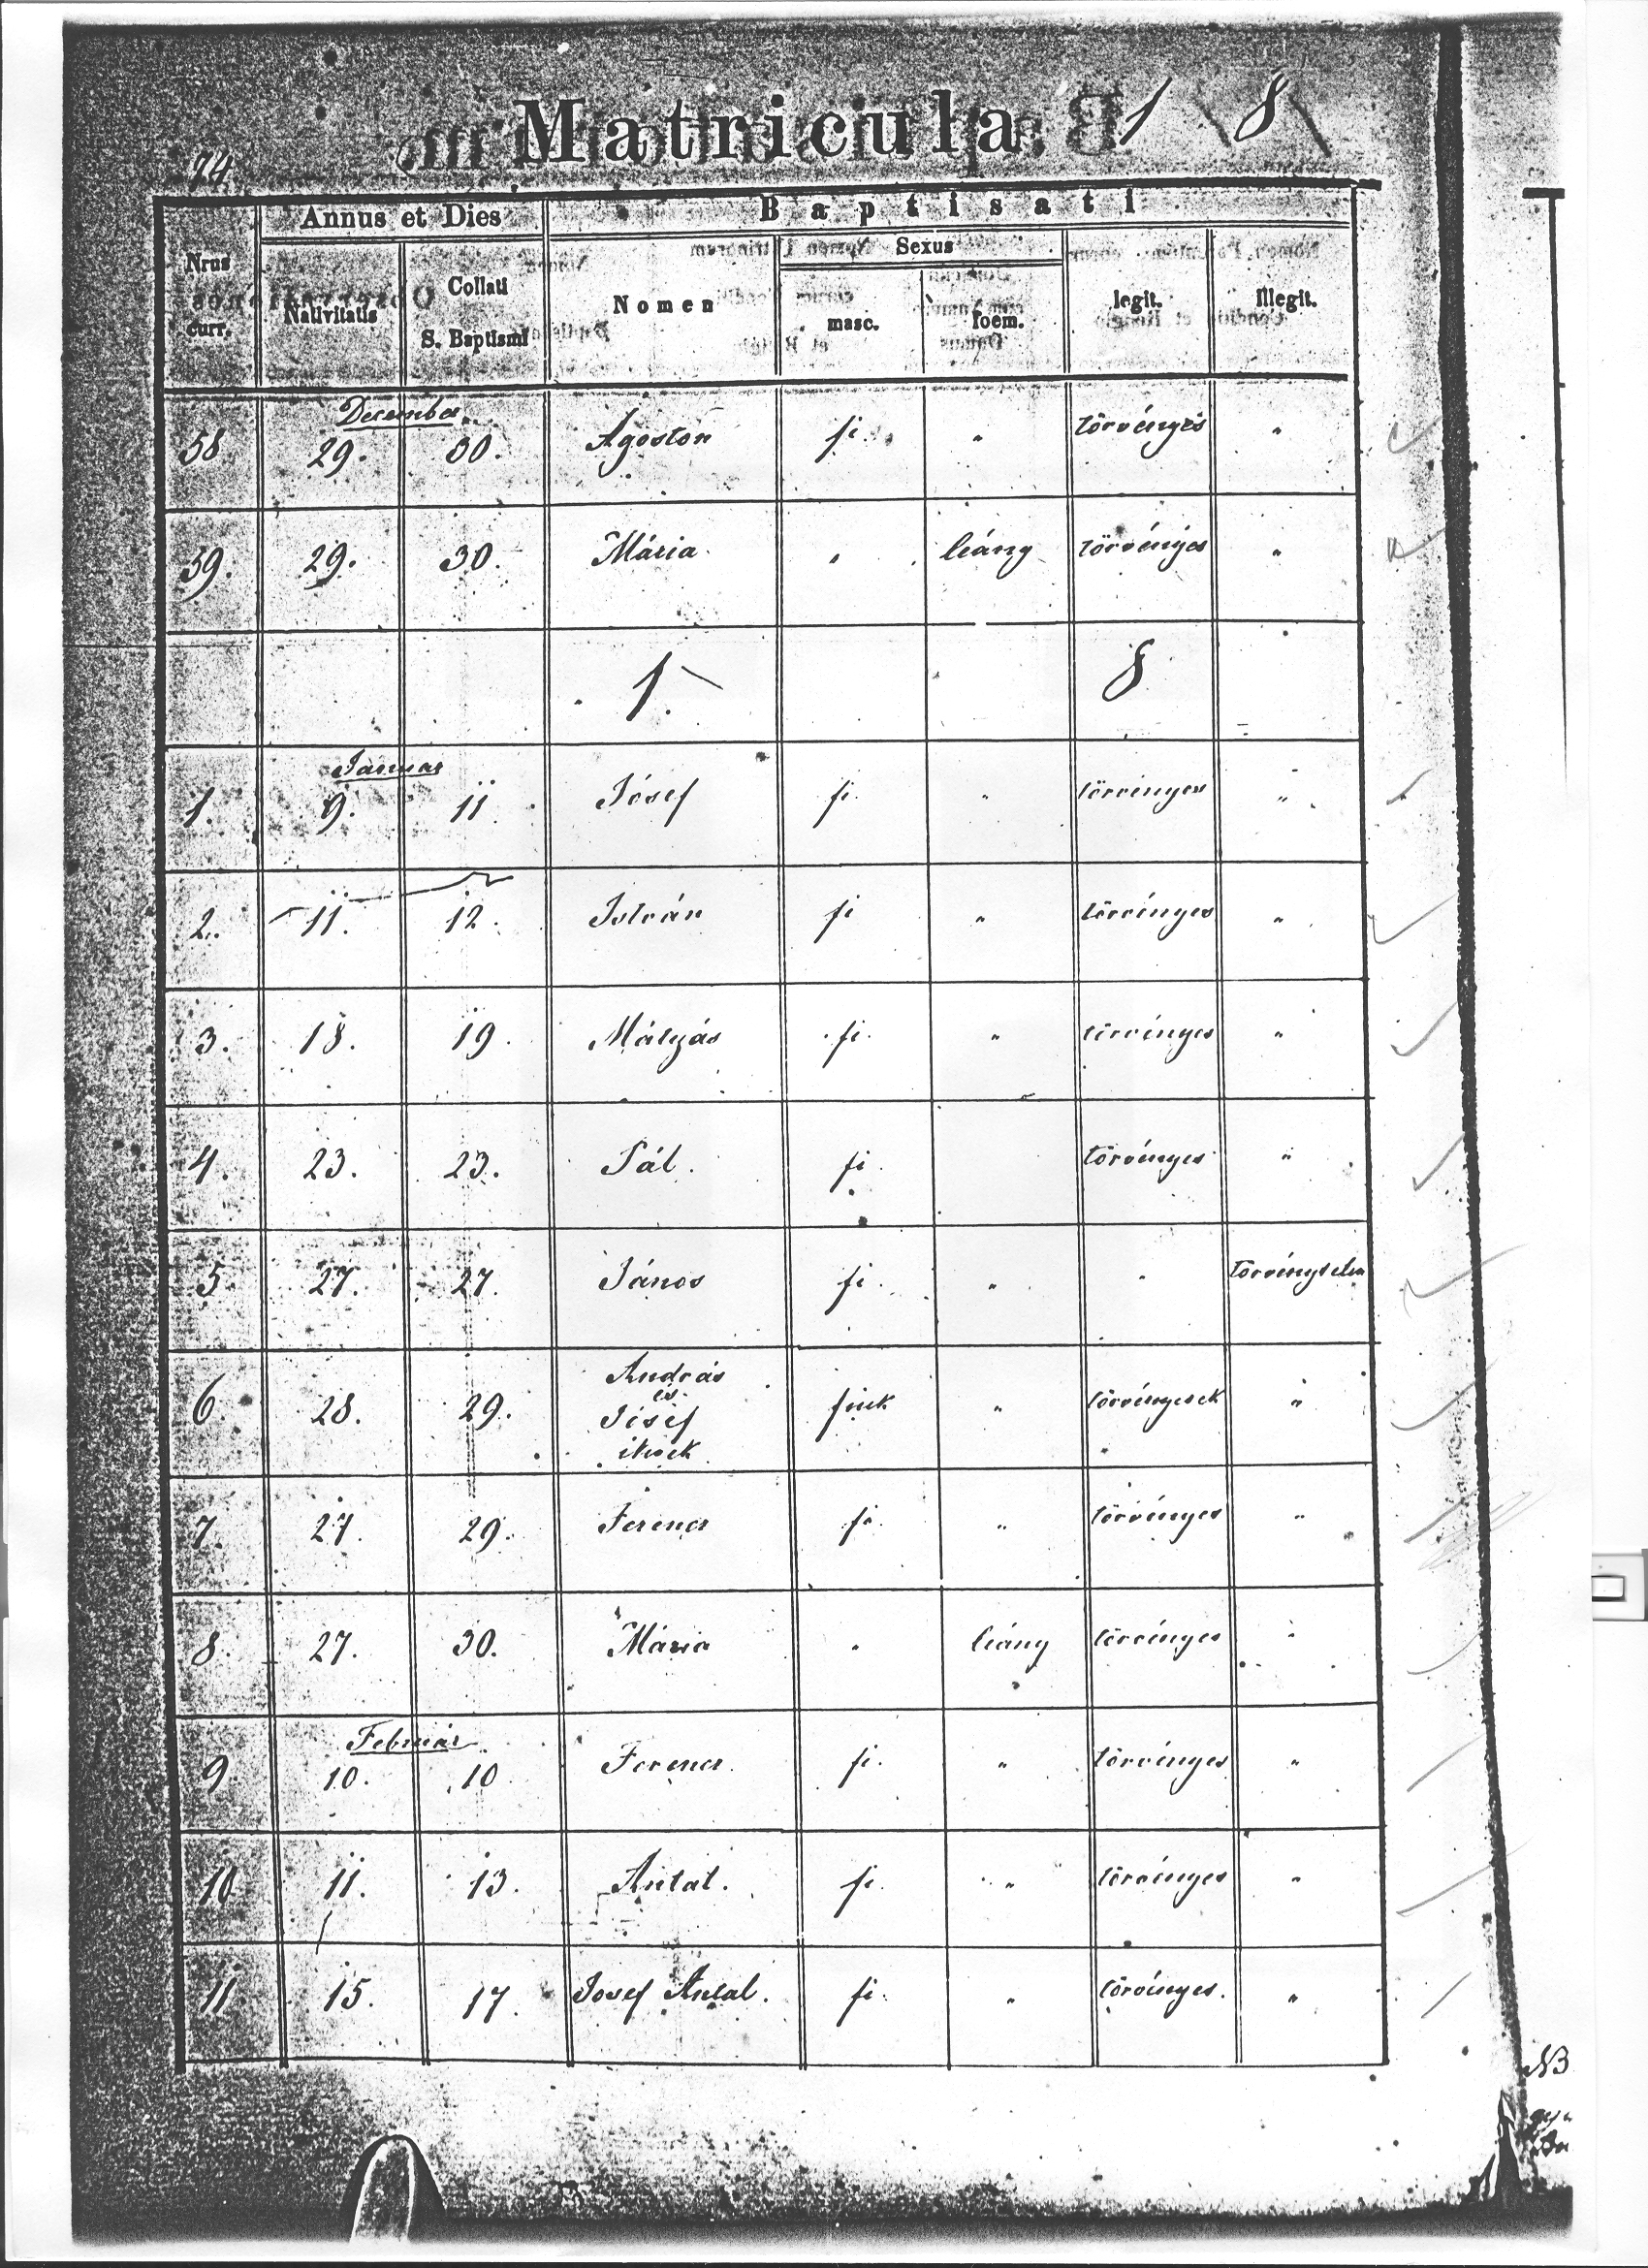 74
Matricula. 1 8
Annus et Dies
Baptisati
Nrus curr.
Nativitatis
Collati S. Baptismi
Nomen
Sexus
masc.
foem.
legit.
illegit.
December
58 29. 30. Ágoston fi. " törvényes "
59. 29. 30. Mária " leány törvényes "
1 8
Januar
1. 9. 11. Jósef fi. " törvényes "
2. 11. 12. István fi " törvényes "
3. 18. 19. Mátyás fi. " törvényes "
4. 23. 23. Pál. fi. törvényes "
5 27. 27. János fi. " " törvénytelen
András
és
6. 28. 29. Jósef fiuk " törvényesek "
ikrek
7. 27. 29. Ferencz fi. " törvényes "
8. 27. 30. Mária " leány törvényes "
Február
9 10. 10 Ferencz. fi. " törvényes "
10 11. 13. Antal. fi. " törvényes "
11 15. 17. Josef Antal. fi. " törvényes. "
NB